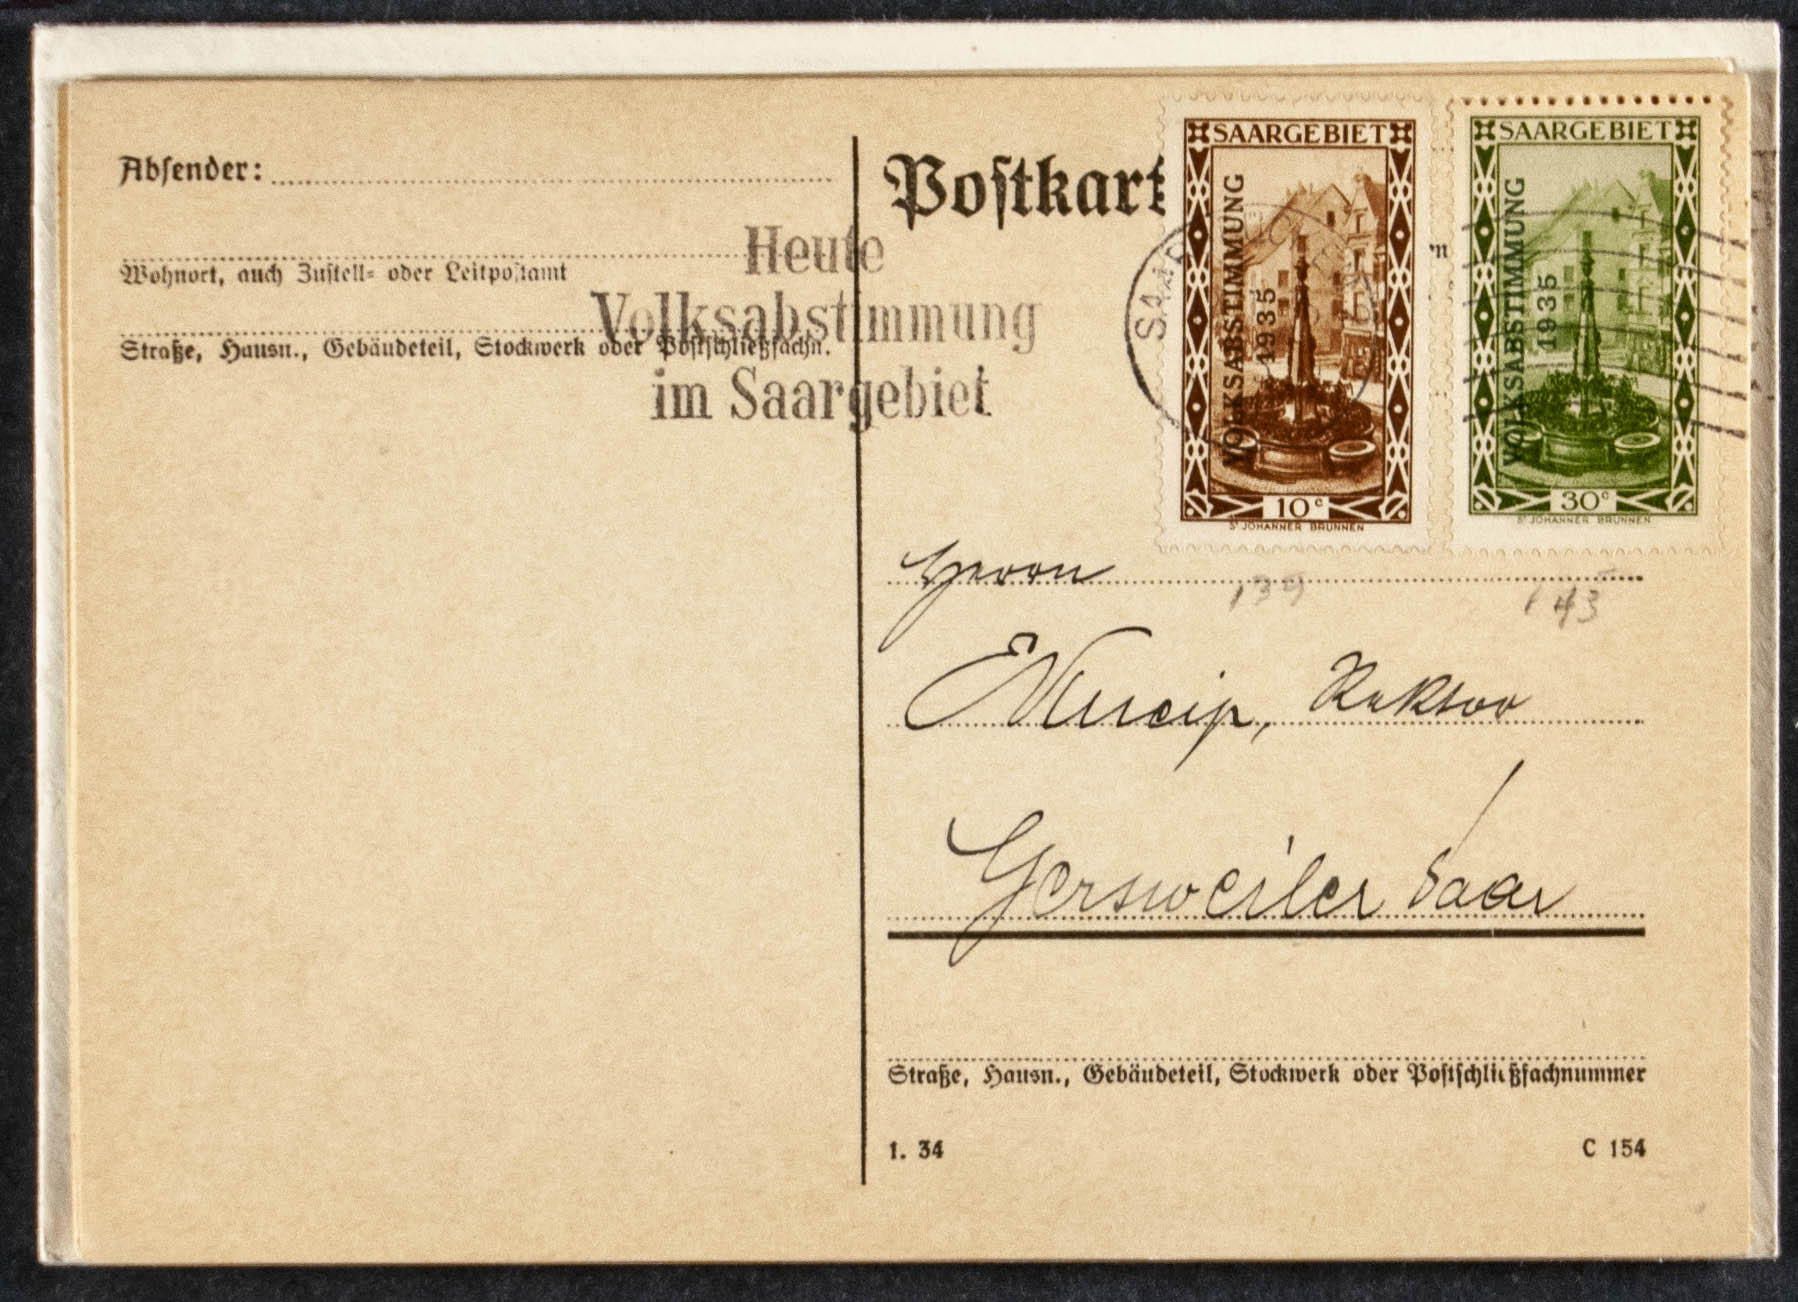 Absender:
Wohnort, auch Zustell= oder Leitpostamt
Straße, Hausn., Gebäudeteil, Stockwerk oder Postschließfachn.
Heute
Volksabstimmung
im Saargebiet
Postkart
SAARGEBIET
VOLKSABSTIMMUNG
1935
10c
ST JOHANNER BRUNNEN
SAARGEBIET
VOLKSABSTIMMUNG
1935
30c
ST JOHANNER BRUNNEN
Herrn
139
143
Rektor
Gersweiler Saar
Straße, Hausn., Gebäudeteil, Stockwerk oder Postschließfachnummer
1. 34
C 154